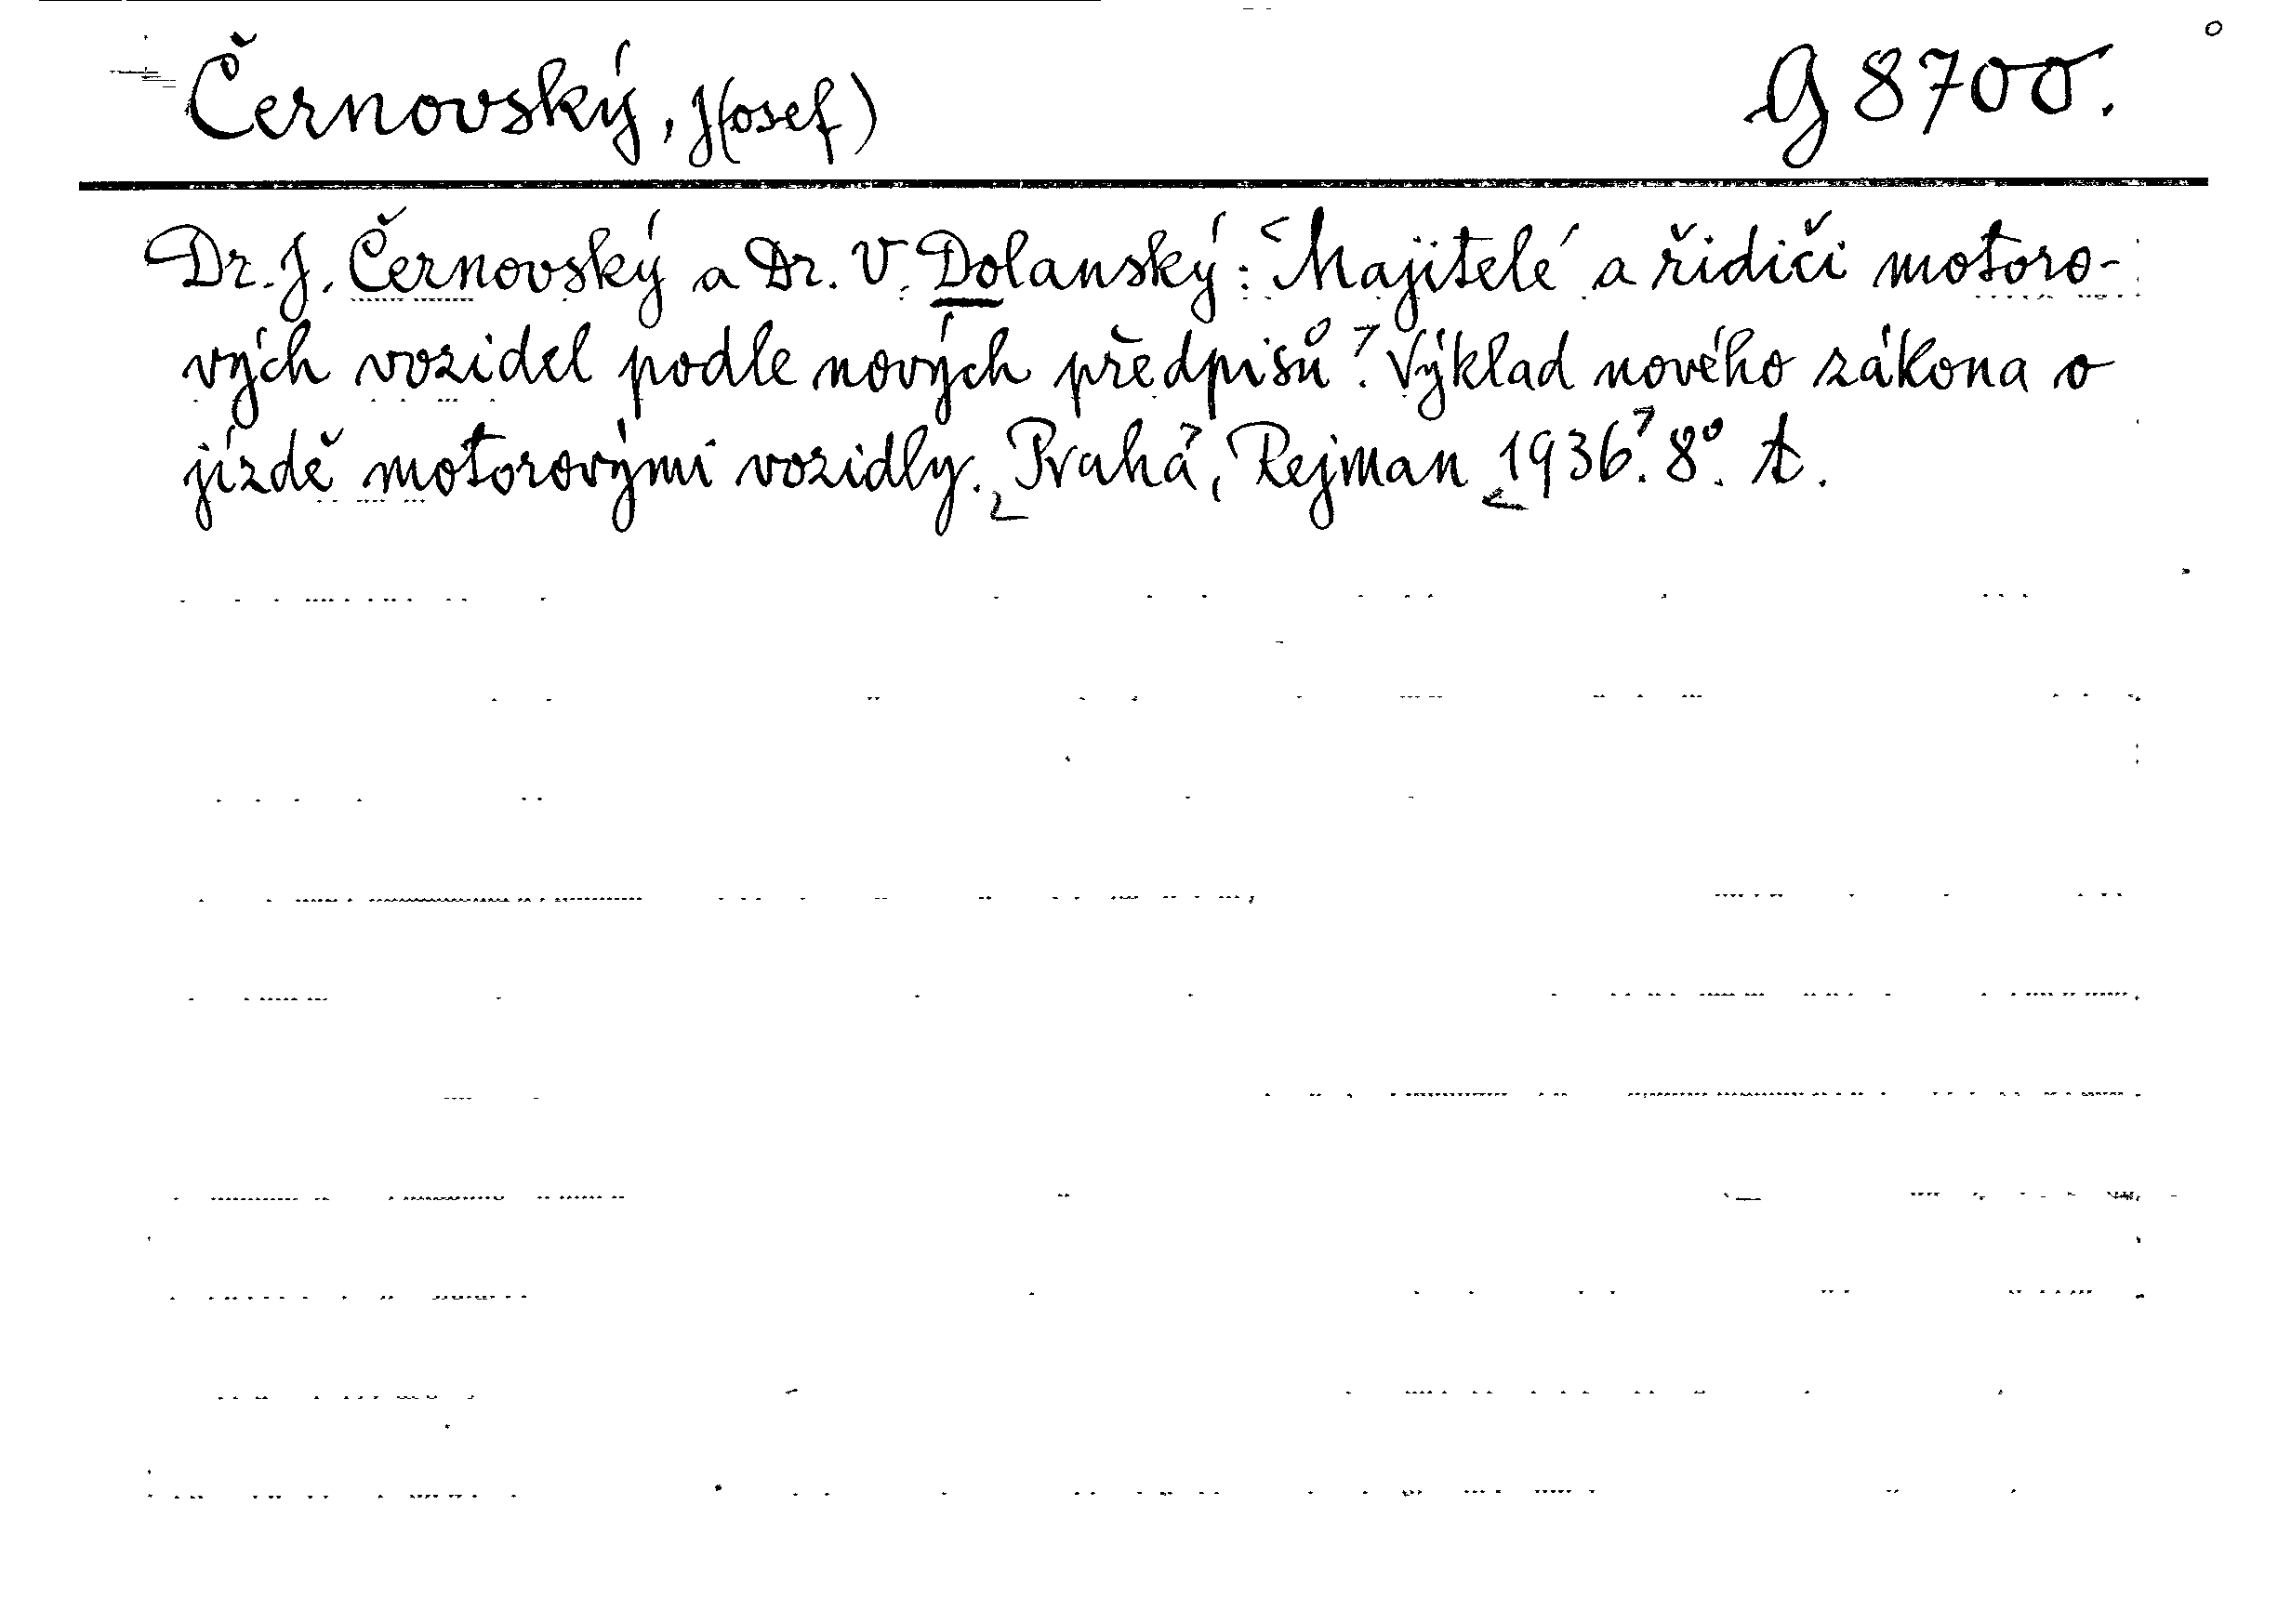 Černovský, J(osef)
G 8700.
Dr. J. Černovský a Dr. V. Dolanský: Majitelé a řidiči motoro-
vých vozidel podle nových předpisů. Výklad nového zákona o
jízdě motorovými vozidly. Praha, Rejman 1936. 8°. A.